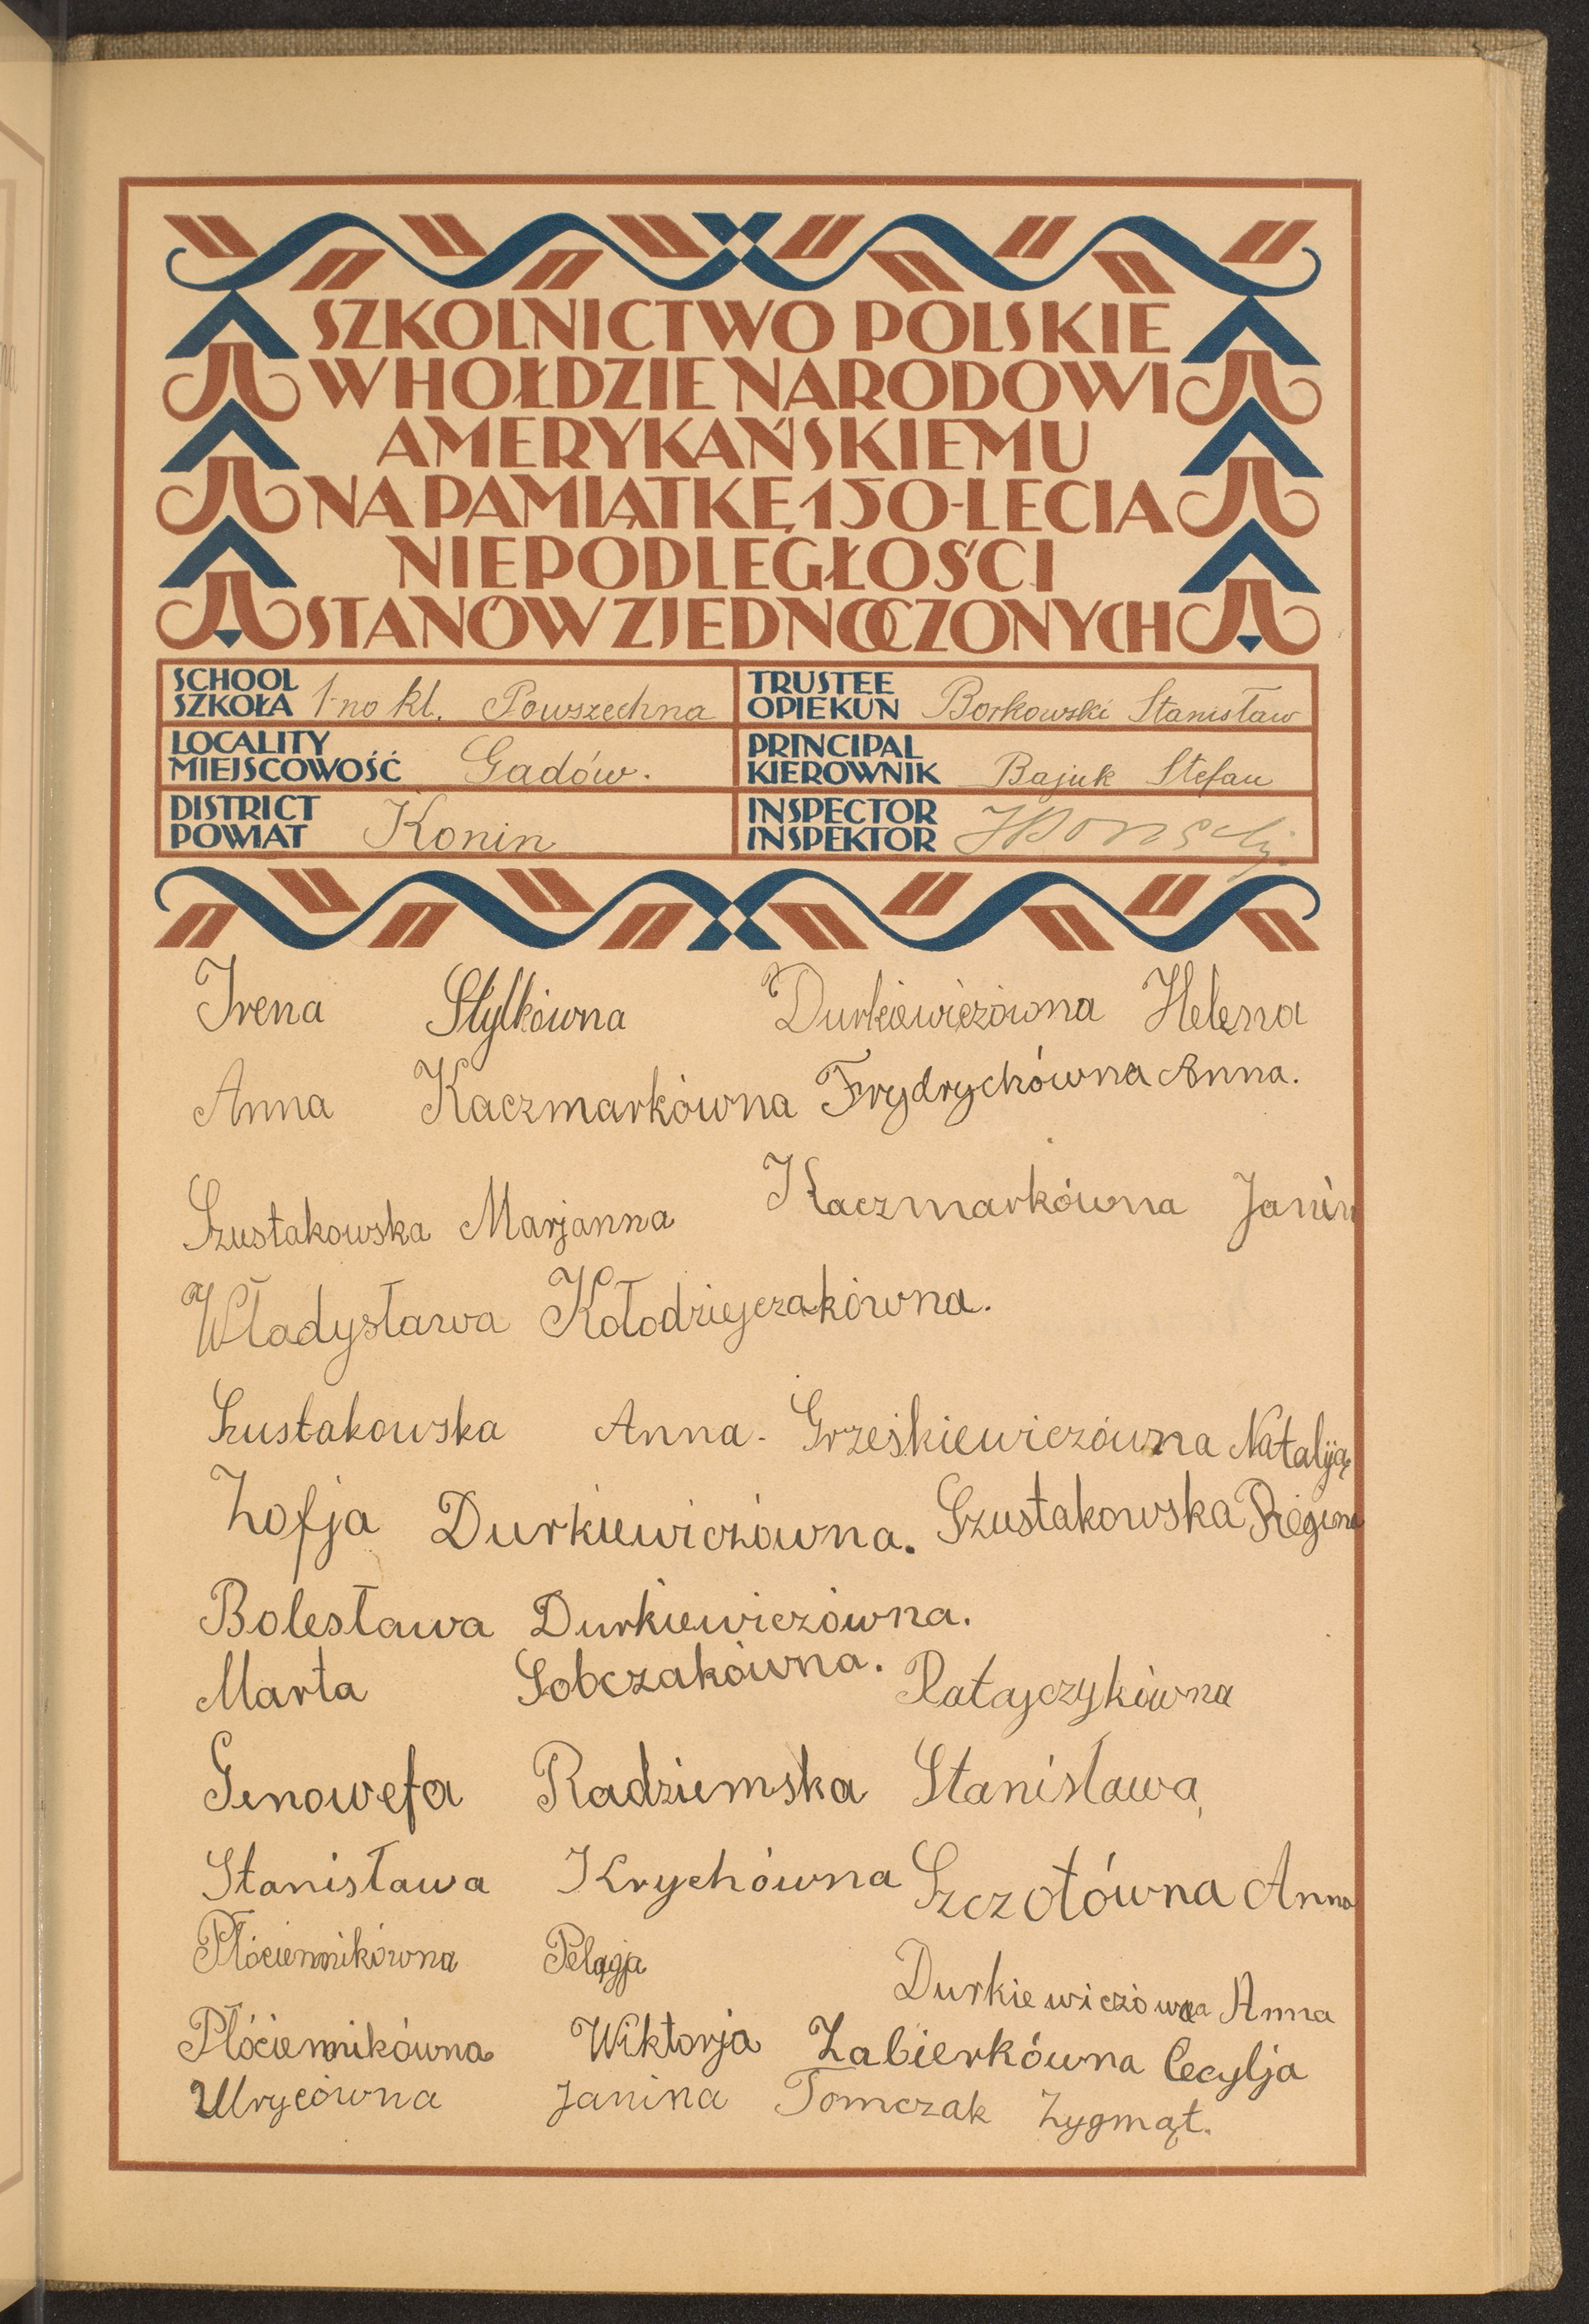 SZKOLNICTWO POLSKIE
W HOŁDZIE NARODOWI
AMERYKAŃSKIEMU
NA PAMIĄTKĘ 150-LECIA
NIEPODLEGŁOŚCI
STANÓW ZJEDNOCZONYCH
SCHOOL
SZKOŁA 1-no kl. Powszechna
TRUSTEE
OPIEKUN Borkowski Stanisław
LOCALITY
MIEJSCOWOŚĆ Gadów.
PRINCIPAL
KIEROWNIK Bajuk Stefan
DISTRICT
POWIAT Konin
INSPECTOR
INSPEKTOR
Irena Stylkówna Durkiewiczówna Helena
Anna Kaczmarkówna Frydrychówna Anna.
Szustakowska Marjanna Kaczmarkówna Janin
Władysława Kołodziejczakówna.
Szustakowska Anna- Grześkiewiczówna Natalija
Zofja Durkiewiczówna. Szustakowska Regina
Bolesława Durkiewiczówna.
Marta Sobczakówna. Ratajczykówna
Genowefa Radziemska Stanisława
Stanisława Krychówna Szczotówna Anna
Płóciennikówna Pelagja
Durkiewiczówna Anna
Płóciennikówna Wiktorja Zabierkówna Cecylja
Urycówna Janina Tomczak Zygmąt.